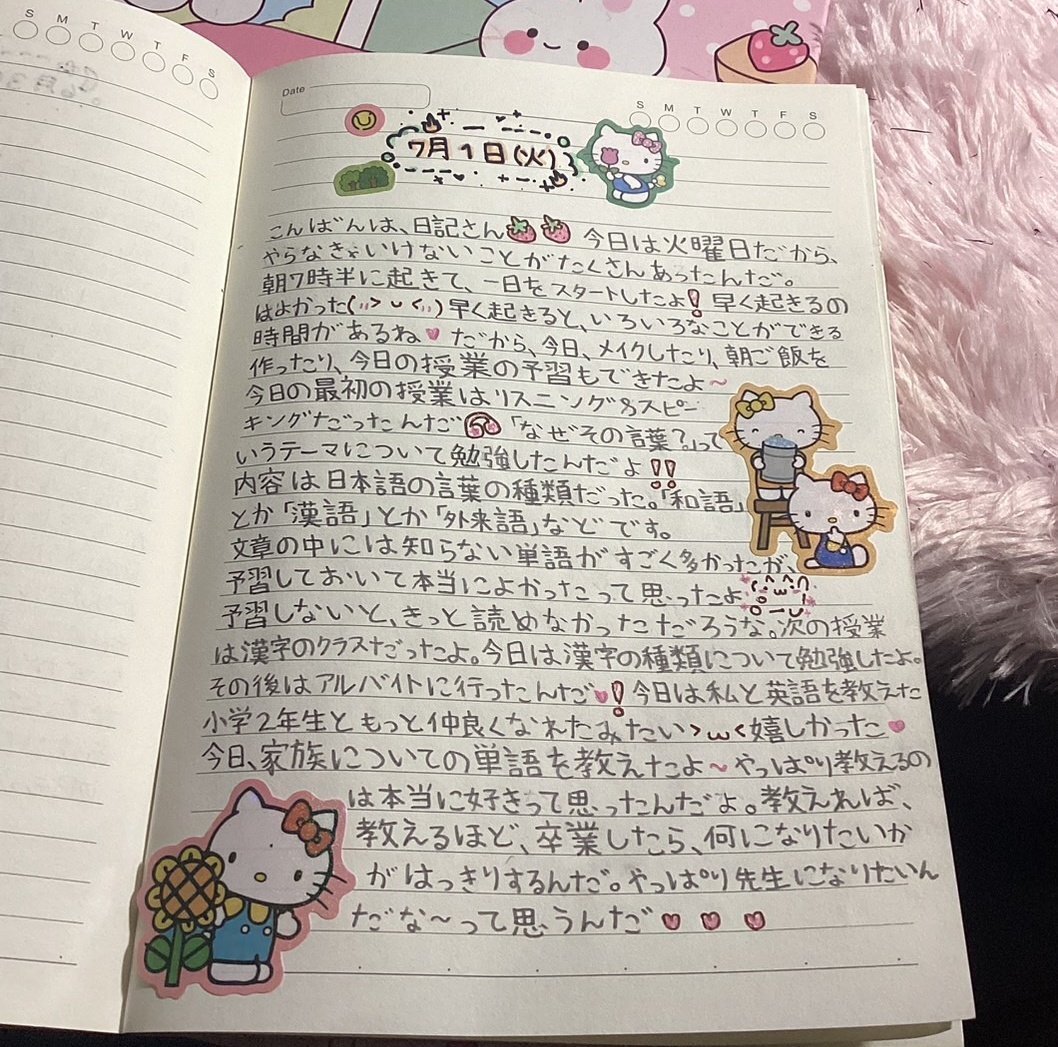 S M T W T F S
Date
S M T W T F S
7月1日(火)
こんばんは、日記さん 今日は火曜日だから、
やらなきゃいけないことがたくさんあったんだ。
朝7時半に起きて、一日をスタートしたよ! 早く起きるの
はよかった(,,> ᴗ <,,) 早く起きると、いろいろなことができる
時間があるね♥ だから、今日、メイクしたり、朝ご飯を
作ったり、今日の授業の予習もできたよ〜
今日の最初の授業はリスニング&スピー
キングだったんだ 「なぜその言葉?」って
いうテーマについて勉強したんだよ!!
内容は日本語の言葉の種類だった。「和語」
とか「漢語」とか「外来語」などです。
文章の中には知らない単語がすごく多かったが、
予習しておいて本当によかったって思ったよ
予習しないと、きっと読めなかっただろうな。次の授業
は漢字のクラスだったよ。今日は漢字の種類について勉強したよ。
その後はアルバイトに行ったんだ♥! 今日は私と英語を教えた
小学2年生ともっと仲良くなれたみたい>ω<嬉しかった♥
今日、家族についての単語を教えたよ〜やっぱり教えるの
は本当に好きって思ったんだよ。教えれば、
教えるほど、卒業したら、何になりたいか
がはっきりするんだ。やっぱり先生になりたいん
だな〜って思うんだ♥ ♥ ♥